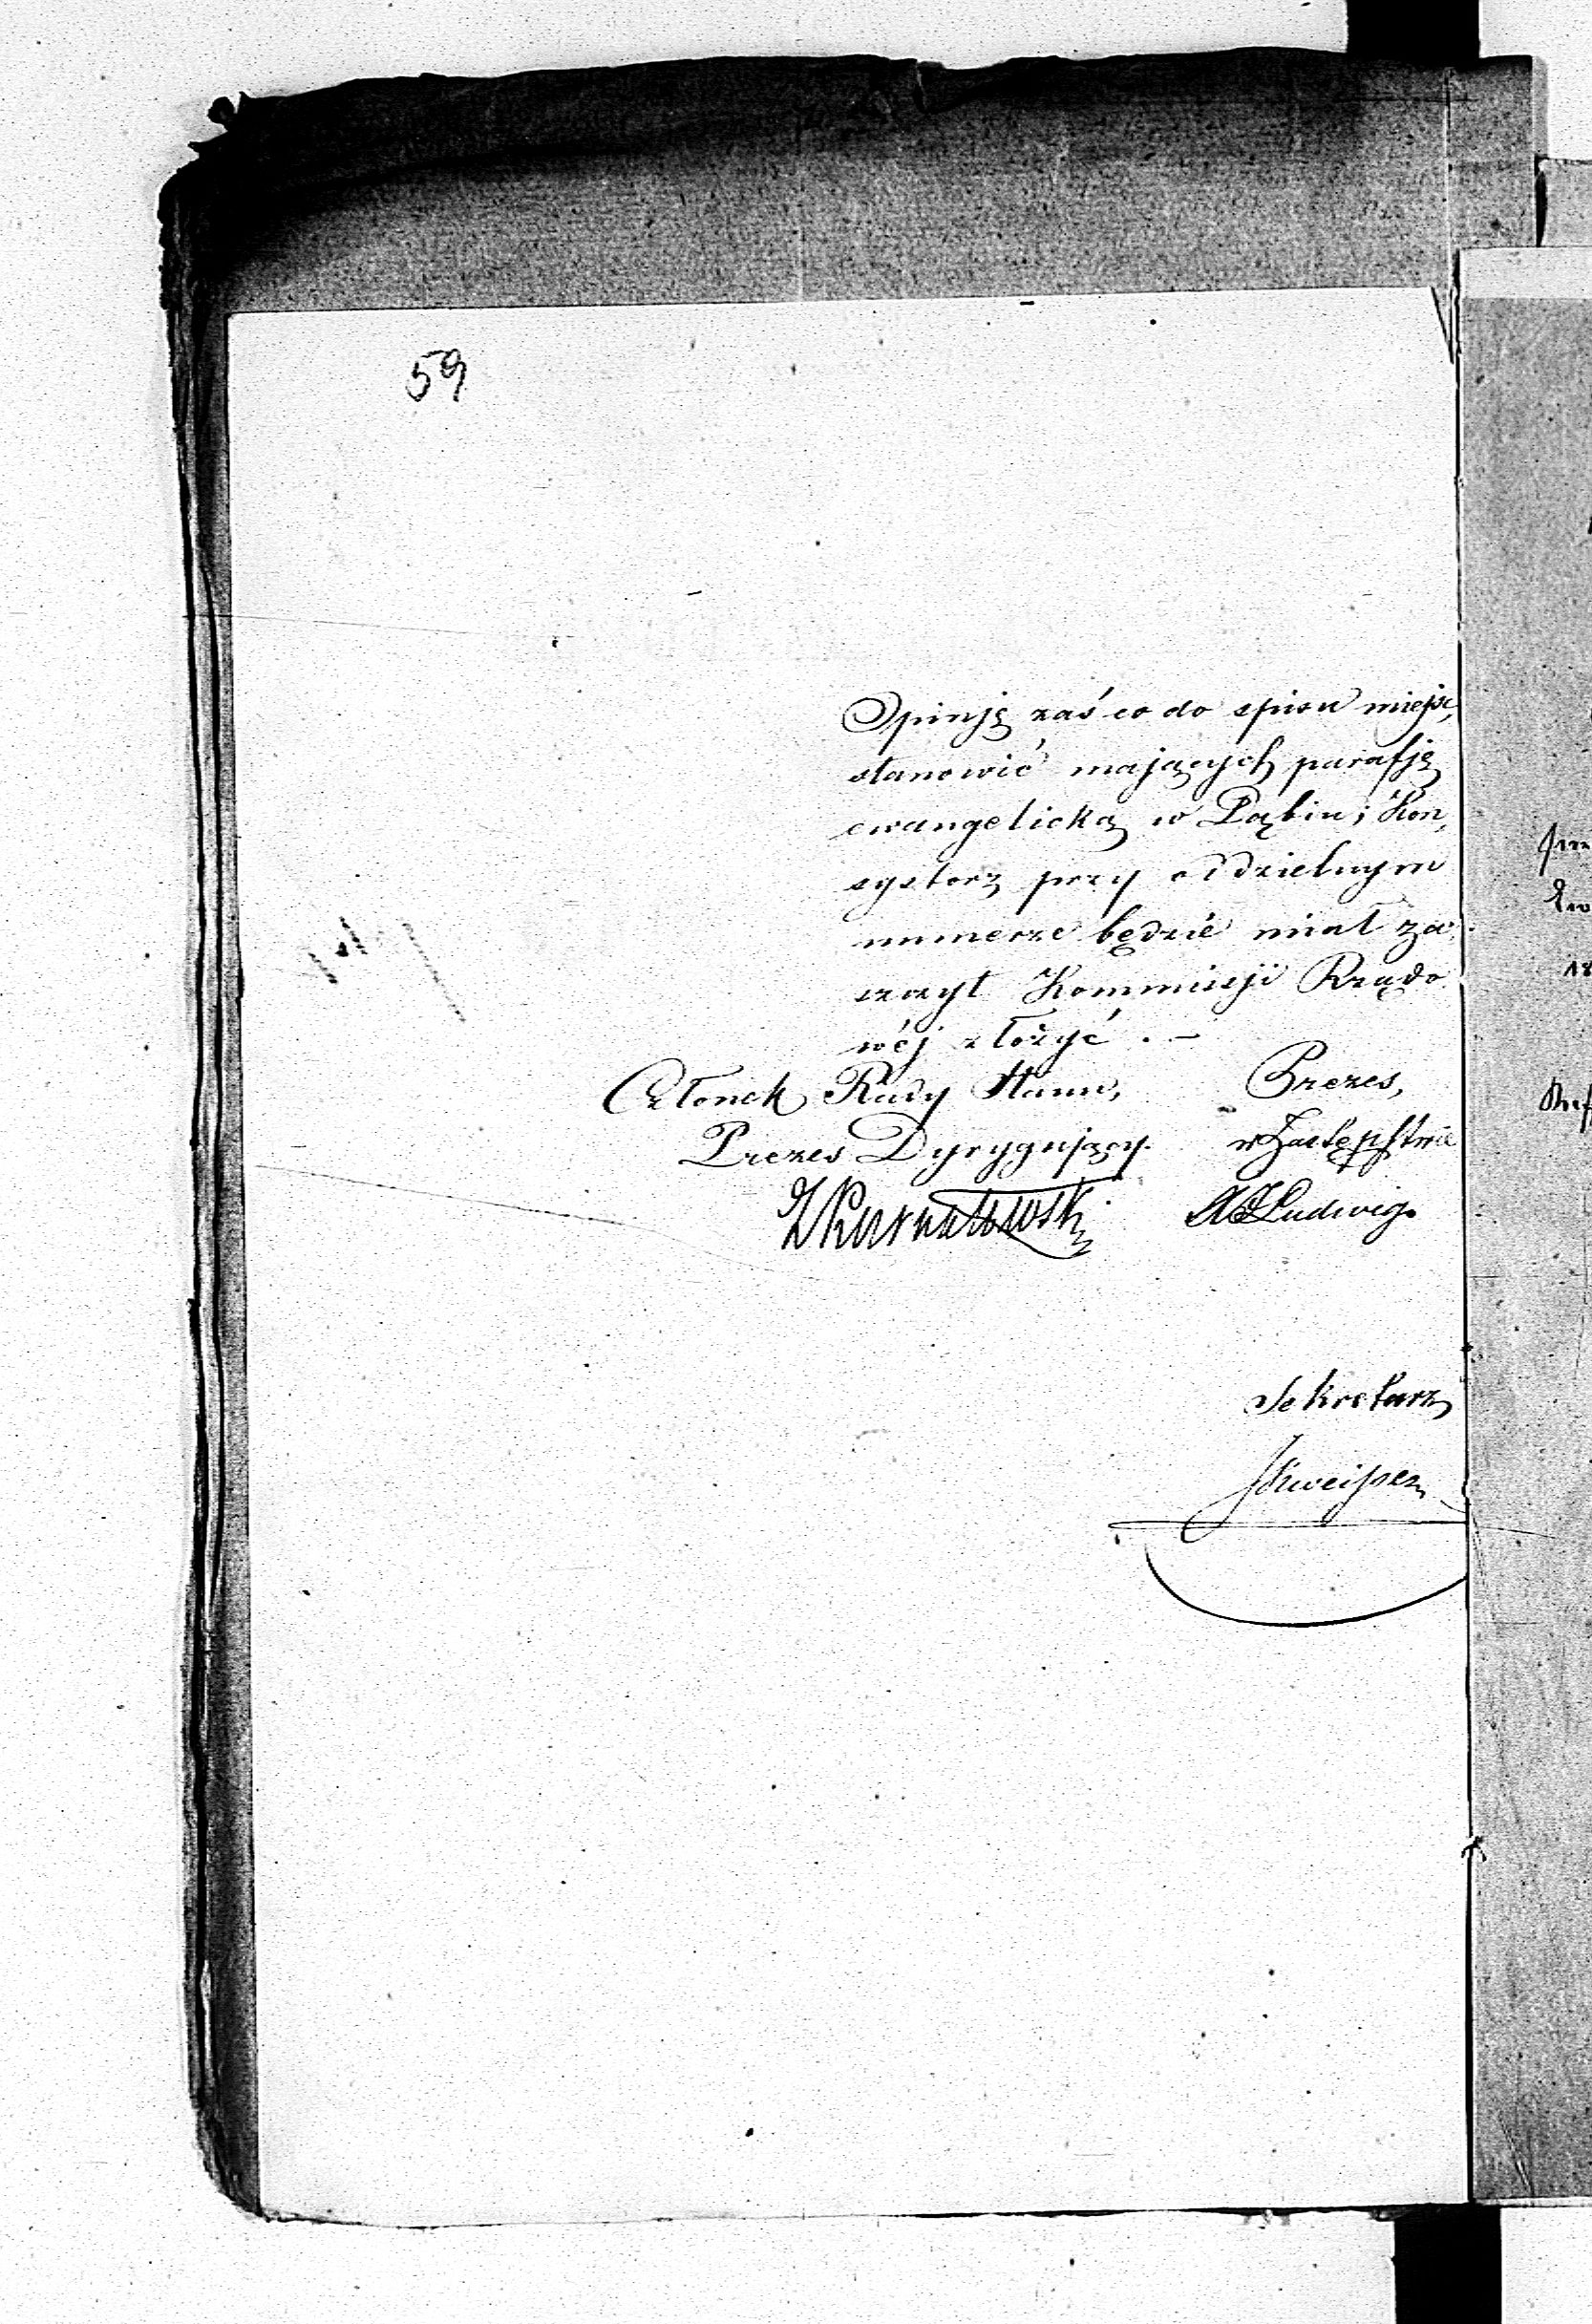 59
Opinję zaś co do spisu miejsc,
stanowić mających parafję
ewangelicką w Dąbiu; Kon,
systorz przy oddzielnym
numerze będzie miał za
szczyt Kommissji Rządo
wéj złożyć. —
Członek Rady Stanu, Prezes,
Prezes Dyrygujący. w Zastępstwie
Kurnatowski Ludwig.
Sekretarz